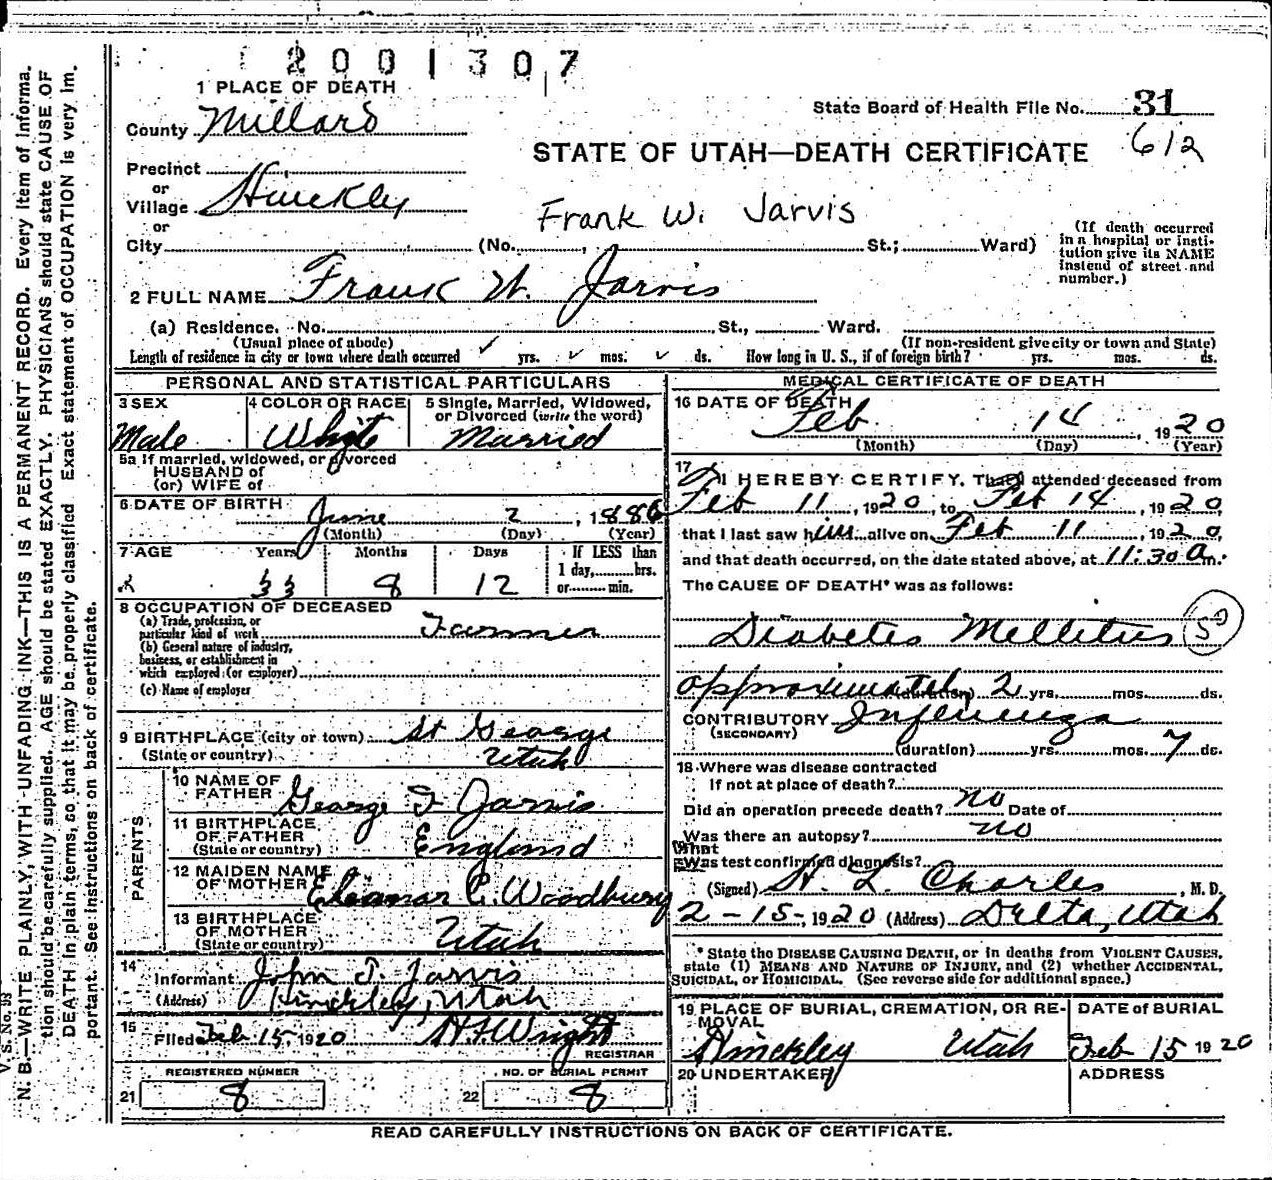 2001307
1 PLACE OF DEATH
State Board of Health File No. 31
County Millard
612
STATE OF UTAH—DEATH CERTIFICATE
Precinct
or
Village Hinckley
Frank W. Jarvis
or
City (No. , St.; Ward)
(If death occurred in a hospital or institution give its NAME instead of street and number.)
2 FULL NAME Frank W. Jarvis
(a) Residence. No. St., Ward.
(Usual place of abode) (If non-resident give city or town and State)
Length of residence in city or town where death occurred ✓ yrs. ✓ mos. ✓ ds. How long in U. S., if of foreign birth? yrs. mos. ds.
PERSONAL AND STATISTICAL PARTICULARS
3 SEX 4 COLOR OR RACE 5 Single, Married, Widowed, or Divorced (write the word)
Male White Married
5a If married, widowed, or divorced
HUSBAND of
(or) WIFE of
6 DATE OF BIRTH
June 2, 1886
(Month) (Day) (Year)
7 AGE Years Months Days If LESS than
1 day, hrs.
33 8 12 or min.
8 OCCUPATION OF DECEASED
(a) Trade, profession, or
particular kind of work Farmer
(b) General nature of industry,
business, or establishment in
which employed (or employer)
(c) Name of employer
9 BIRTHPLACE (city or town) St George
(State or country) Utah
PARENTS
10 NAME OF
FATHER George F Jarvis
11 BIRTHPLACE
OF FATHER
(State or country) England
12 MAIDEN NAME
OF MOTHER Eleanar C. Woodbury
13 BIRTHPLACE
OF MOTHER
(State or country) Utah
14
Informant John T. Jarvis
(Address) Hinckley, Utah
15
Filed Feb 15, 1920 Wright
REGISTRAR
REGISTERED NUMBER NO. OF BURIAL PERMIT
21 8 22 8
MEDICAL CERTIFICATE OF DEATH
16 DATE OF DEATH
Feb 14, 1920
(Month) (Day) (Year)
17
I HEREBY CERTIFY, That I attended deceased from
Feb 11, 1920, to Feb 14, 1920,
that I last saw him alive on Feb 11, 1920,
and that death occurred, on the date stated above, at 11:30 a m.
The CAUSE OF DEATH* was as follows:
Diabetes Mellitus 50
approximately (duration) 2 yrs. mos. ds.
CONTRIBUTORY Influenza
(SECONDARY)
(duration) yrs. mos. 7 ds.
18 Where was disease contracted
If not at place of death?
Did an operation precede death? no Date of
Was there an autopsy? no
What
Was test confirmed diagnosis?
(Signed) H. L. Charles, M. D.
2-15-1920 (Address) Delta, Utah
* State the DISEASE CAUSING DEATH, or in deaths from VIOLENT CAUSES,
state (1) MEANS AND NATURE OF INJURY, and (2) whether ACCIDENTAL,
SUICIDAL, or HOMICIDAL. (See reverse side for additional space.)
19 PLACE OF BURIAL, CREMATION, OR RE-
MOVAL
DATE of BURIAL
Hinckley Utah Feb 15 1920
20 UNDERTAKER ADDRESS
READ CAREFULLY INSTRUCTIONS ON BACK OF CERTIFICATE.
V. S. No.
N. B.—WRITE PLAINLY, WITH UNFADING INK—THIS IS A PERMANENT RECORD. Every item of informa-
tion should be carefully supplied. AGE should be stated EXACTLY. PHYSICIANS should state CAUSE OF
DEATH in plain terms, so that it may be properly classified. Exact statement of OCCUPATION is very im-
portant. See instructions on back of certificate.